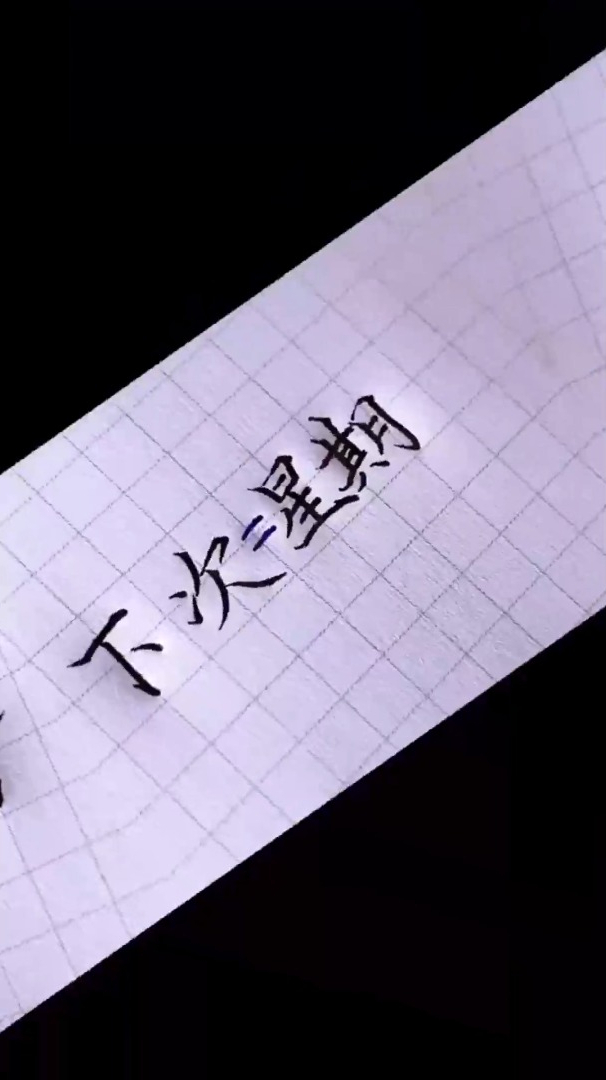 下次=星期